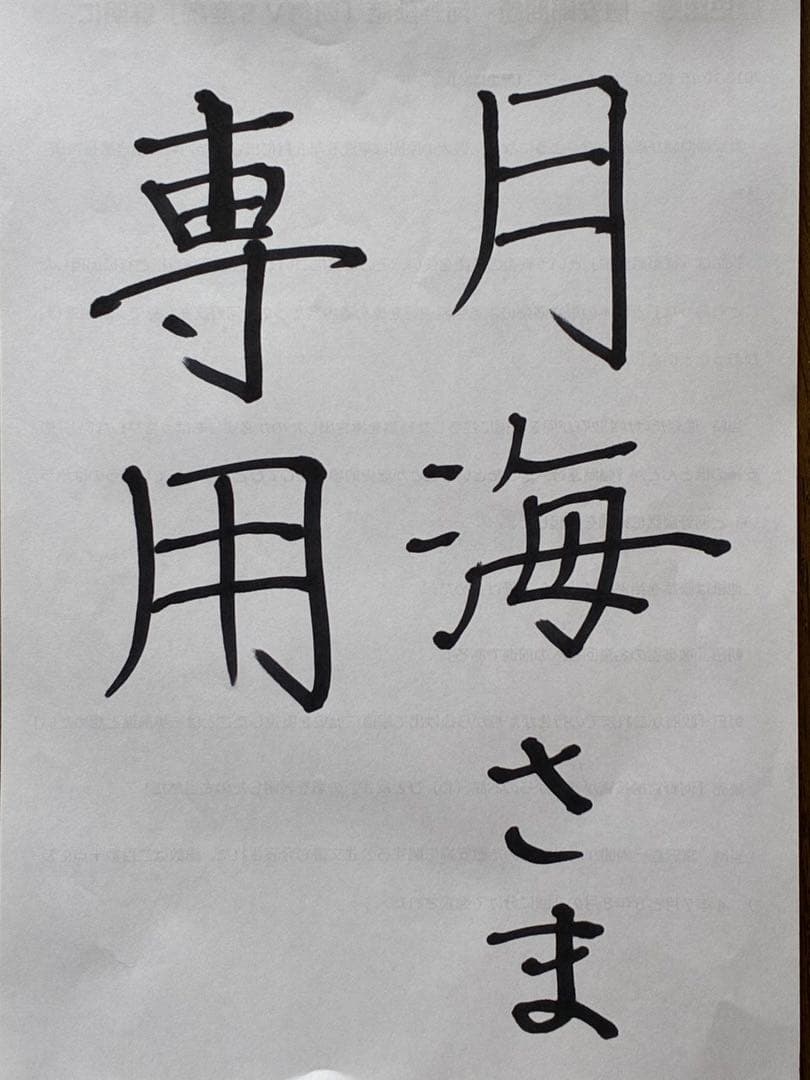 月海さま
専用